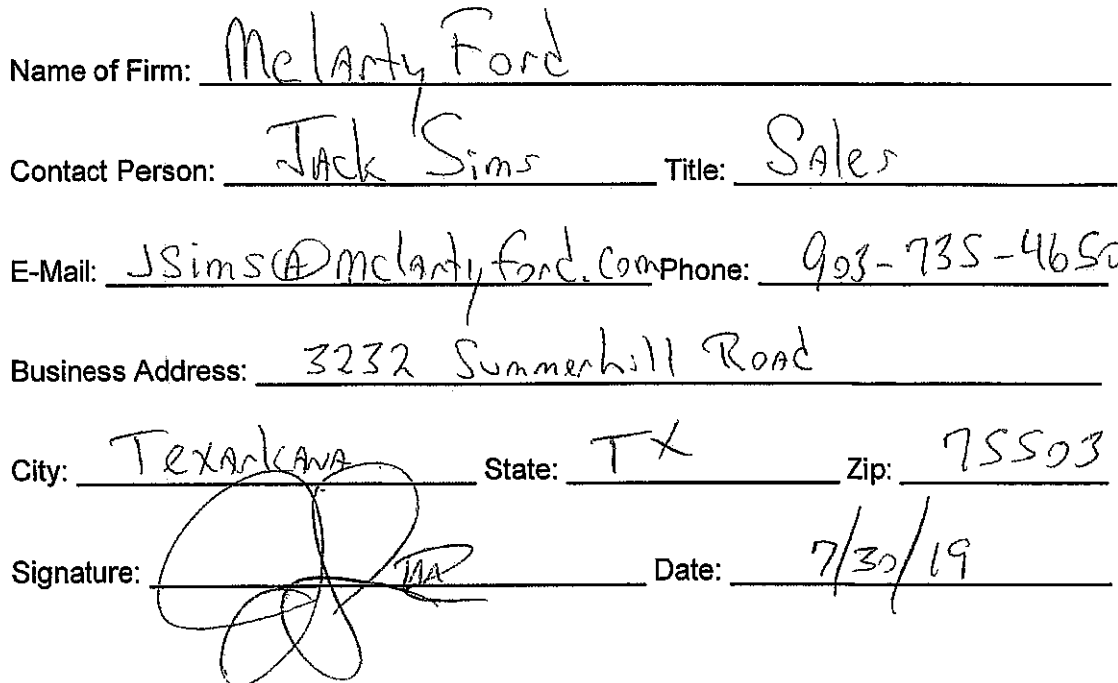 Name of Firm: McLarty Ford
Contact Person: Jack Sims Title: Sales
E-Mail: JSims@mclartyford.com Phone: 903-735-4650
Business Address: 3232 Summerhill Road
City: Texarkana State: TX Zip: 75503
Signature: Date: 7/30/19